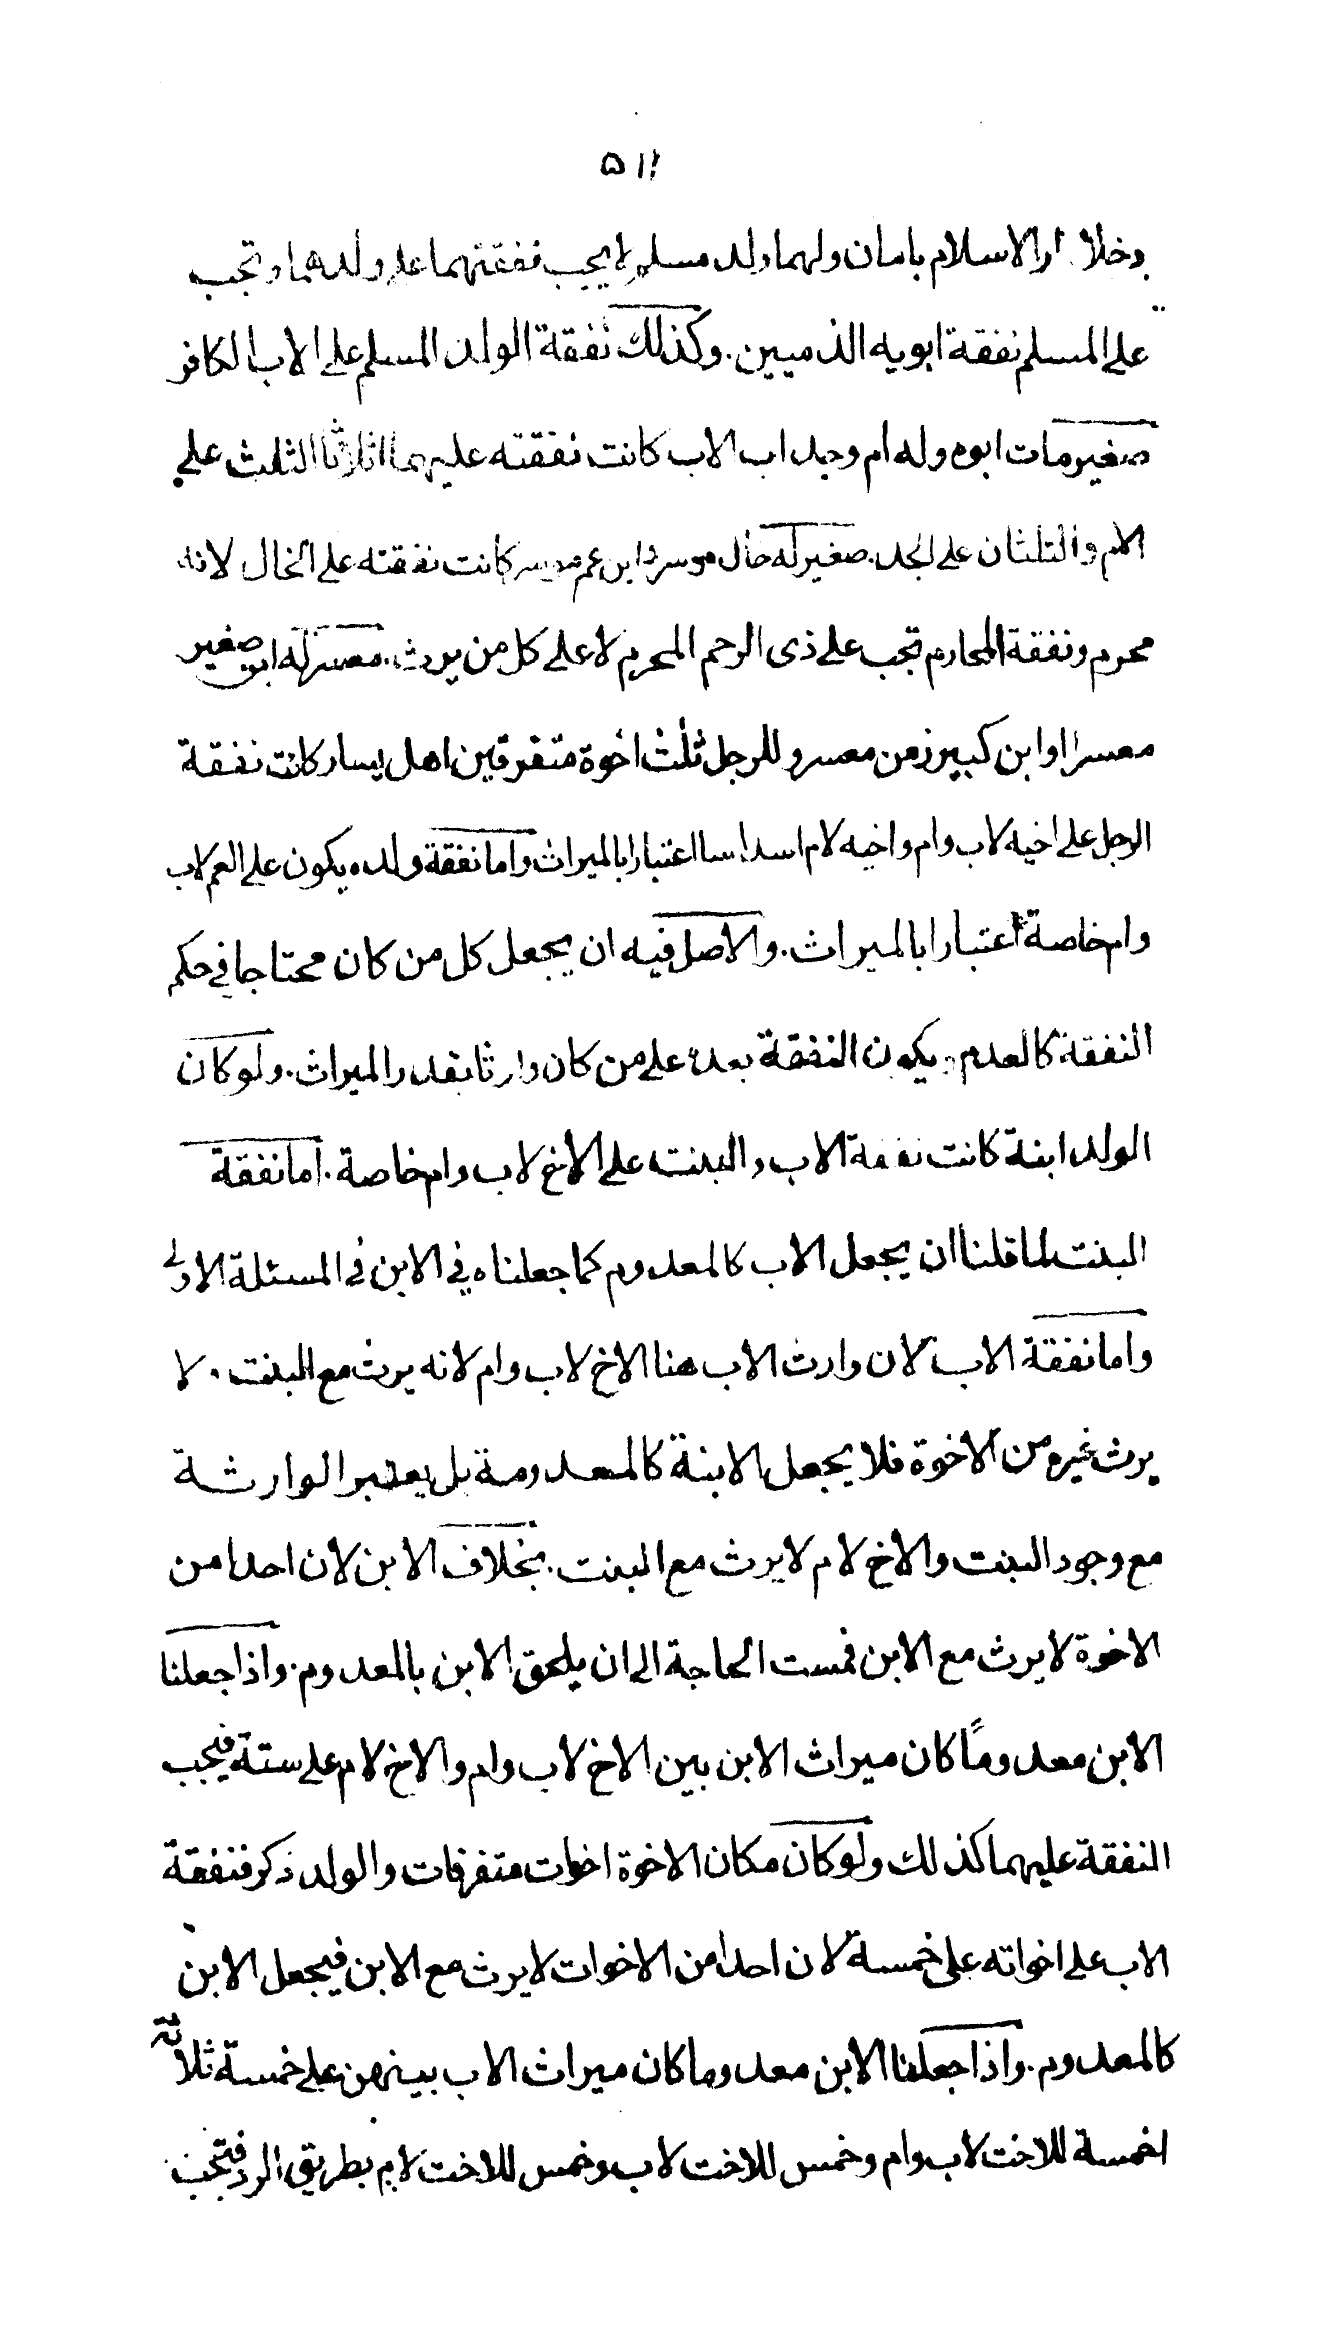 ۵۱۲
دخلا دار الاسلام بامان ولهما ولد مسلم لا يجب نفقتهما على ولدهما وتجب
على المسلم نفقة ابويه الذميين. وكذلك نفقة الولد المسلم على الاب الكافر
صغير مات ابوه وله ام وجد اب الاب كانت نفقته عليهما اثلاثا الثلث على
الام والثلثان على الجد. صغير له خال موسر وابن عم موسر كانت نفقته على الخال لانه
محرم ونفقة المحارم تجب على ذى الرحم المحرم لا على كل من يرث. معسر له ابن صغير
معسرا وابن كبير زمن معسر وللرجل ثلث اخوة متفرقين اهل يسار كانت نفقة
الرجل على اخيه لاب وام واخيه لام اسداسا اعتبارا بالميراث واما نفقة ولده يكون على العم لاب
وام خاصة اعتبارا بالميراث. والاصل فيه ان يجعل كل من كان محتاجا في حكم
النفقة كالعدم ويكون النفقة بعده على من كان وارثا بقدر الميراث. ولو كان
الولد ابنة كانت نفقة الاب والبنت على الاخ لاب وام خاصة. اما نفقة
البنت لما قلنا ان يجعل الاب كالمعدوم كما جعلناه في الابن في المسئلة الاولى
واما نفقة الاب لان وارث الاب هنا الاخ لاب وام لانه يرث مع البنت. لا
يرث غيره من الاخوة فلا يجعل الابنة كالمعدومة بل يعتبر الوارثة
مع وجود البنت والاخ لام لا يرث مع البنت. بخلاف الابن لان احدا من
الاخوة لا يرث مع الابن فمست الحاجة الى ان يلحق الابن بالمعدوم. واذا جعلنا
الابن معدومًا كان ميراث الابن بين الاخ لاب وام والاخ لام على ستة فيجب
النفقة عليهما كذلك ولو كان مكان الاخوة اخوات متفرقات والولد ذكر فنفقة
الاب على اخواته على خمسة لان احدا من الاخوات لا يرث مع الابن فيجعل الابن
كالمعدوم. واذا جعلنا الابن معدوما كان ميراث الاب بينهن على خمسة ثلاثة
اخمسة للاخت لاب وام وخمس للاخت لاب وخمس للاخت لام بطريق الرد فتجب